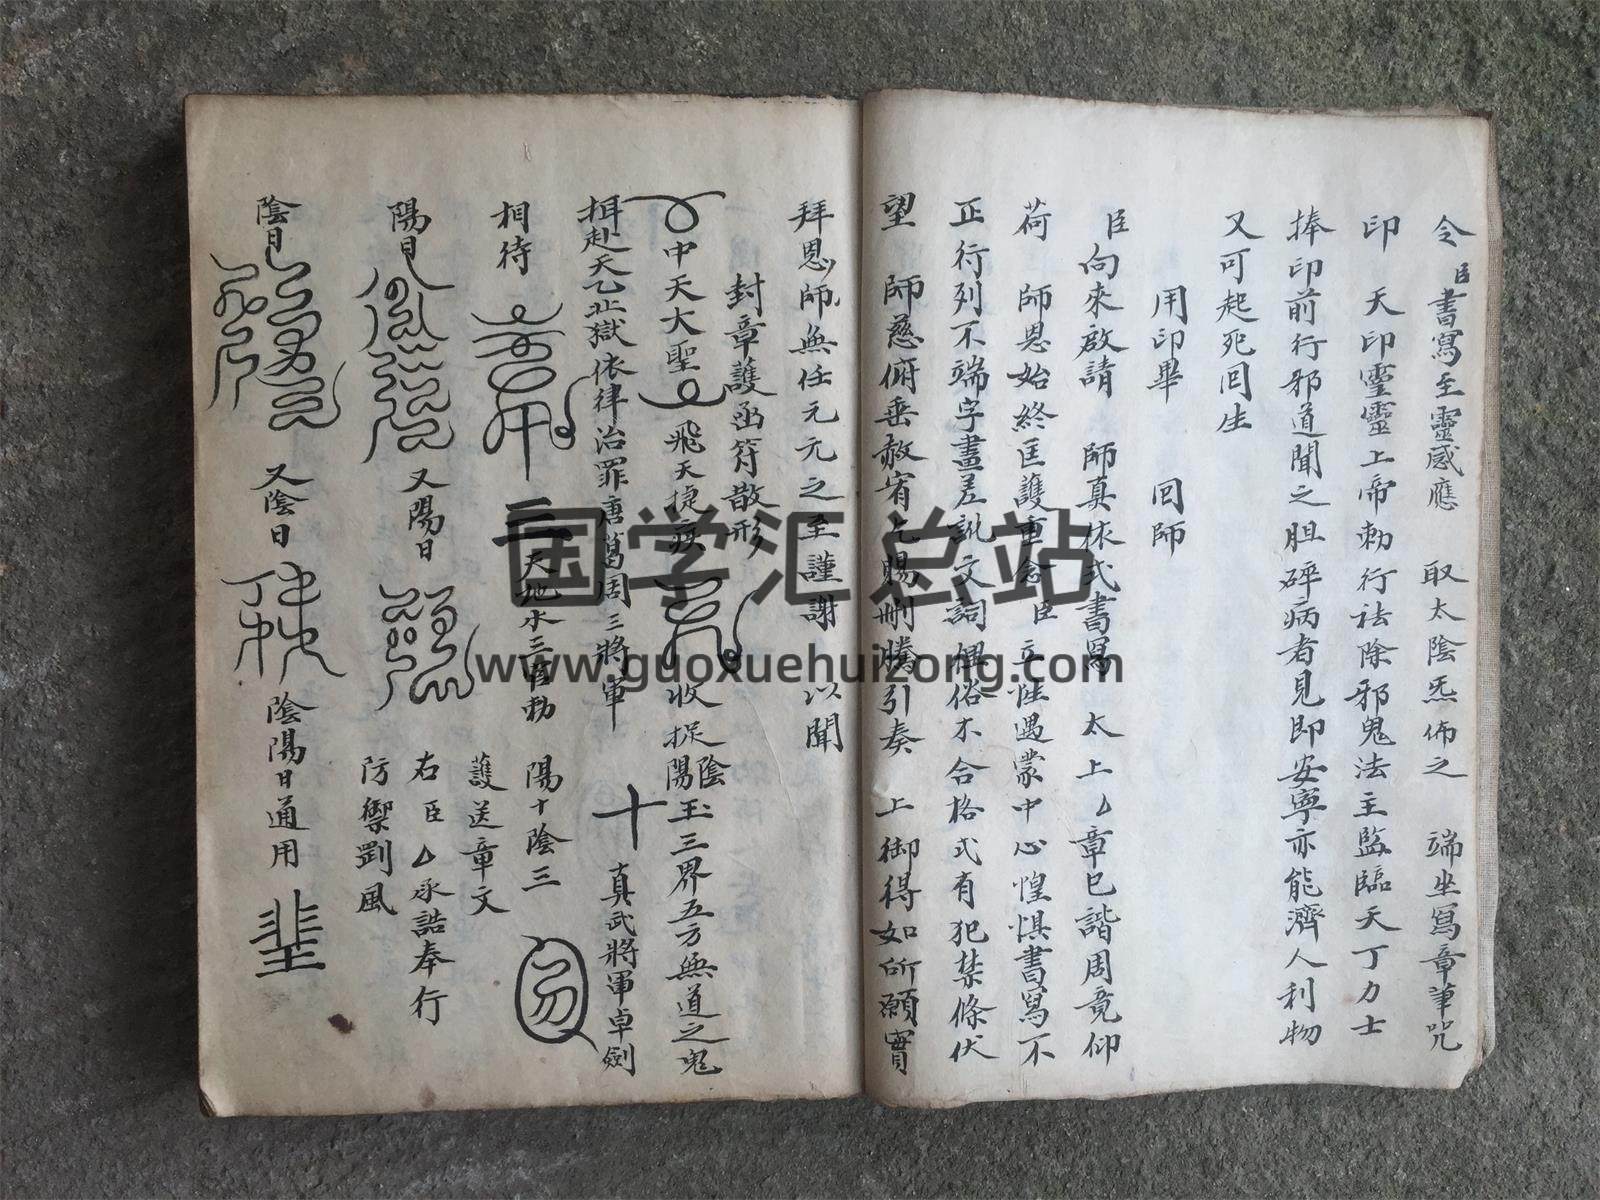 令臣書寫至靈感應 取太陰炁佈之 端坐寫章筆咒
印 天印靈靈上帝勅行法除邪鬼法主監臨天丁力士
捧印前行邪道聞之胆碎病者見即安寧亦能濟人利物
又可起死囘生
用印畢 囘師
臣向來啟請 師真依式書寫 太上厶章已諧周竟仰
荷 師恩始終匡護重念臣立性遇蒙中心惶惧書寫不
正行列不端字畫差訛文詞俚俗不合格式有犯禁條伏
望 師慈俯垂赦宥乞賜删騰引奏 上御得如所願實
拜恩師無任元元之至謹謝 以聞
封章護函符散形
中天大聖 飛天捷疾 收捉陰陽玉三界五方無道之鬼
揖赴天乙北獄依律治罪唐葛周三將軍 十 真武將軍卓劍
相待 天地水三官勅 陽十陰三
護送章文
陽日 又陽日 右臣厶承誥奉行
防禦劉風
陰日 又陰日 陰陽日通用
国学汇总站
www.guoxuehuizong.com